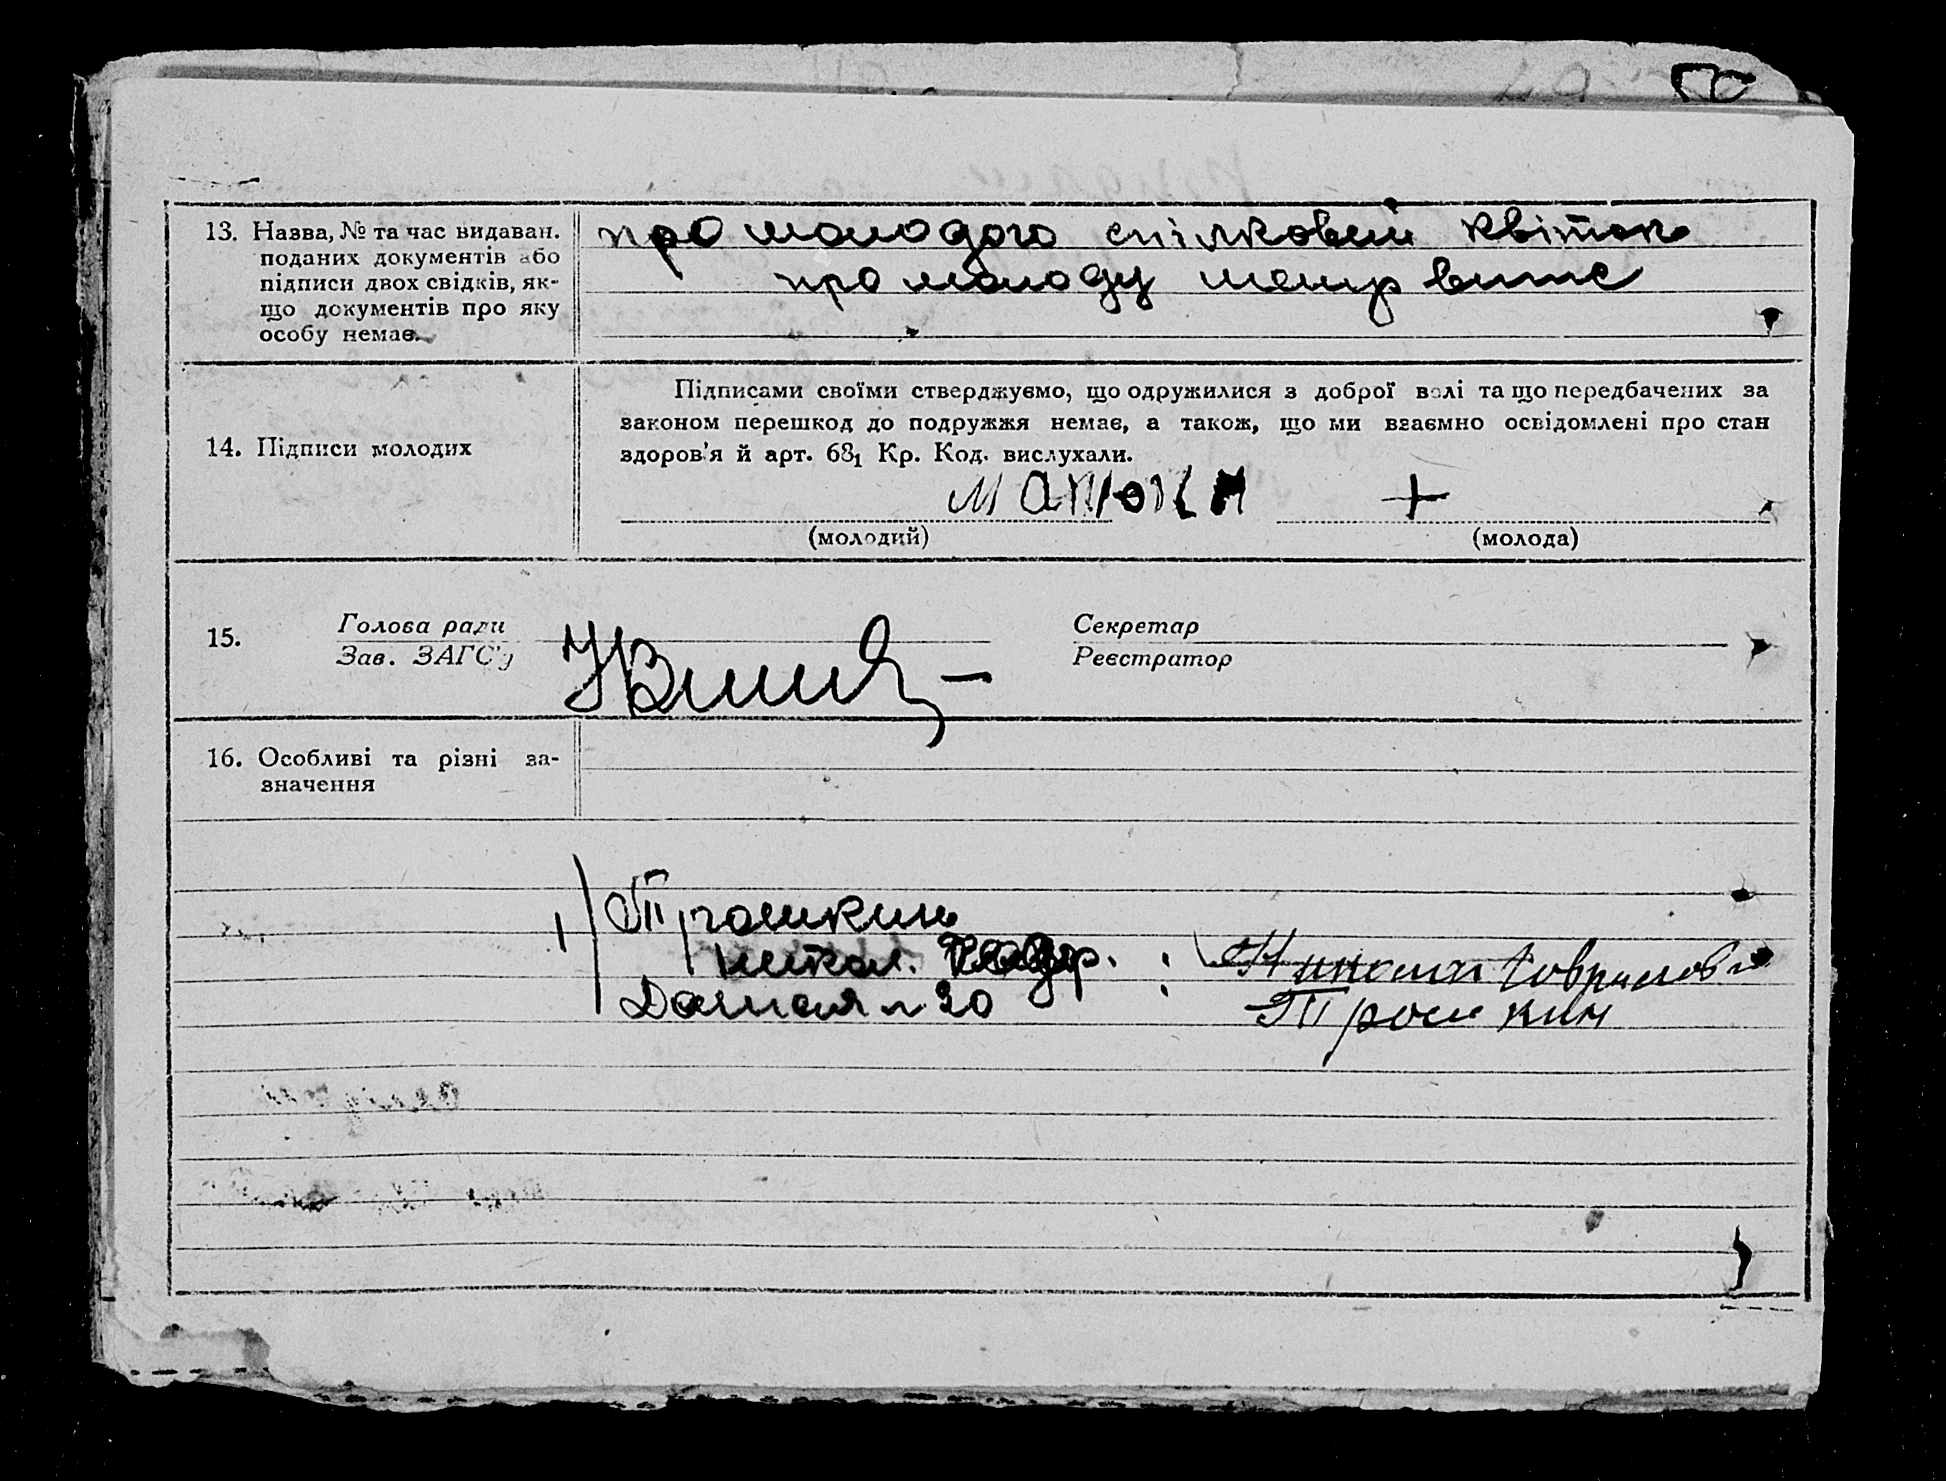 13. Назва, № та час видаван.
поданих документів або
підписи двох свідків, як-
що документів про яку
особу немає.
про молодого спілковий квіток
про молоду
14. Підписи молодих
Підписами своїми стверджуємо, що одружилися з доброї волі та що передбачених за
законом перешкод до подружжя немає, а також, що ми взаємно освідомлені про стан
здоров'я й арт. 68₁ Кр. Код. вислухали.
+
(молодий) (молода)
15. Голова ради
Зав. ЗАГС'у
Секретар
Реєстратор
16. Особливі та різні за-
значення
1/ Трошкин
Никол.
20
Трошкин